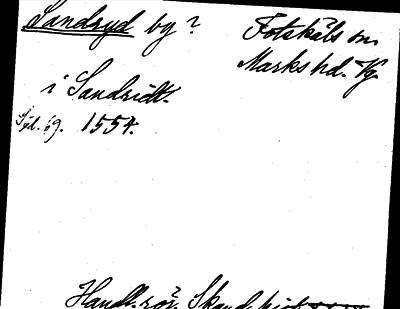 Sandryd by? Fotskäls sn
Marks hd. Vg.
i Sandridt.
Sid. 69. 1554.
Handl. rör. Skand. hist.